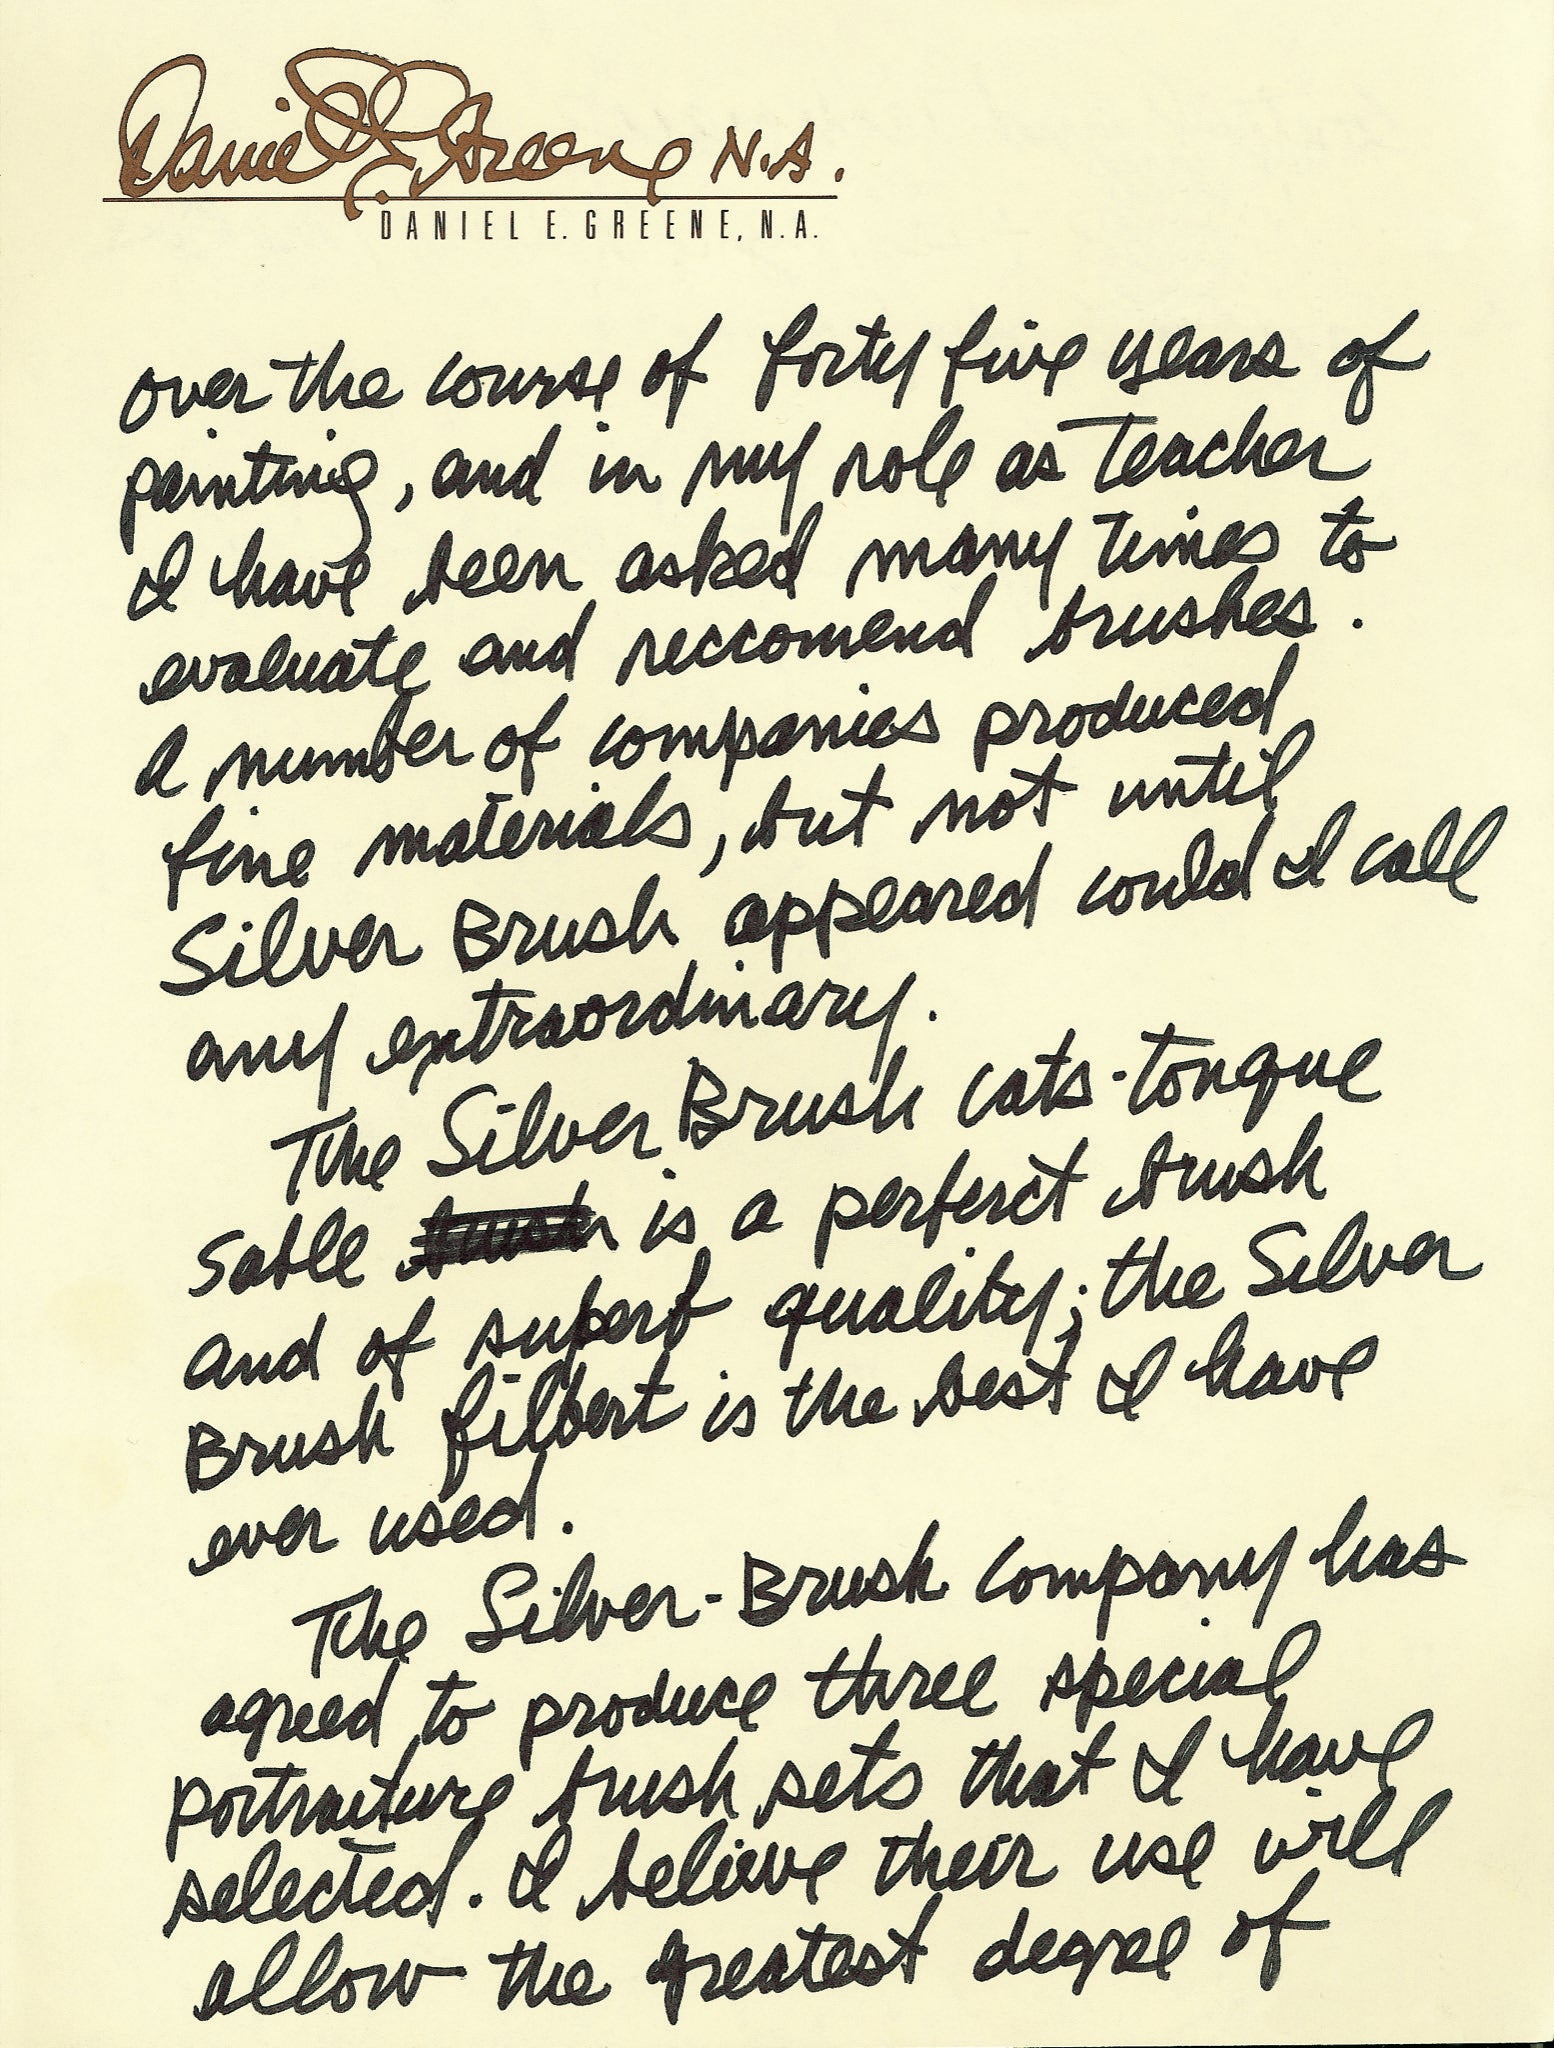 Daniel E. Greene N.A.
DANIEL E. GREENE, N.A.
over the course of forty five years of
painting, and in my role as teacher
I have been asked many times to
evaluate and reccomend brushes.
A number of companies produced
fine materials, but not until
Silver Brush appeared could I call
any extraordinary.
The Silver Brush cats-tongue
sable brush is a perferct brush
and of superb quality; the Silver
Brush filbert is the best I have
ever used.
The Silver-Brush company has
agreed to produce three special
portraiture brush sets that I have
selected. I believe their use will
allow the greatest degree of